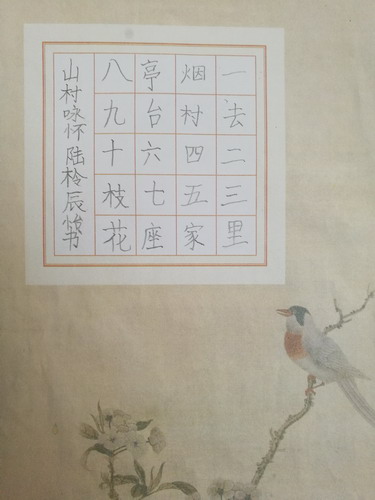 一去二三里
烟村四五家
亭台六七座
八九十枝花
山村咏怀陆柃辰书